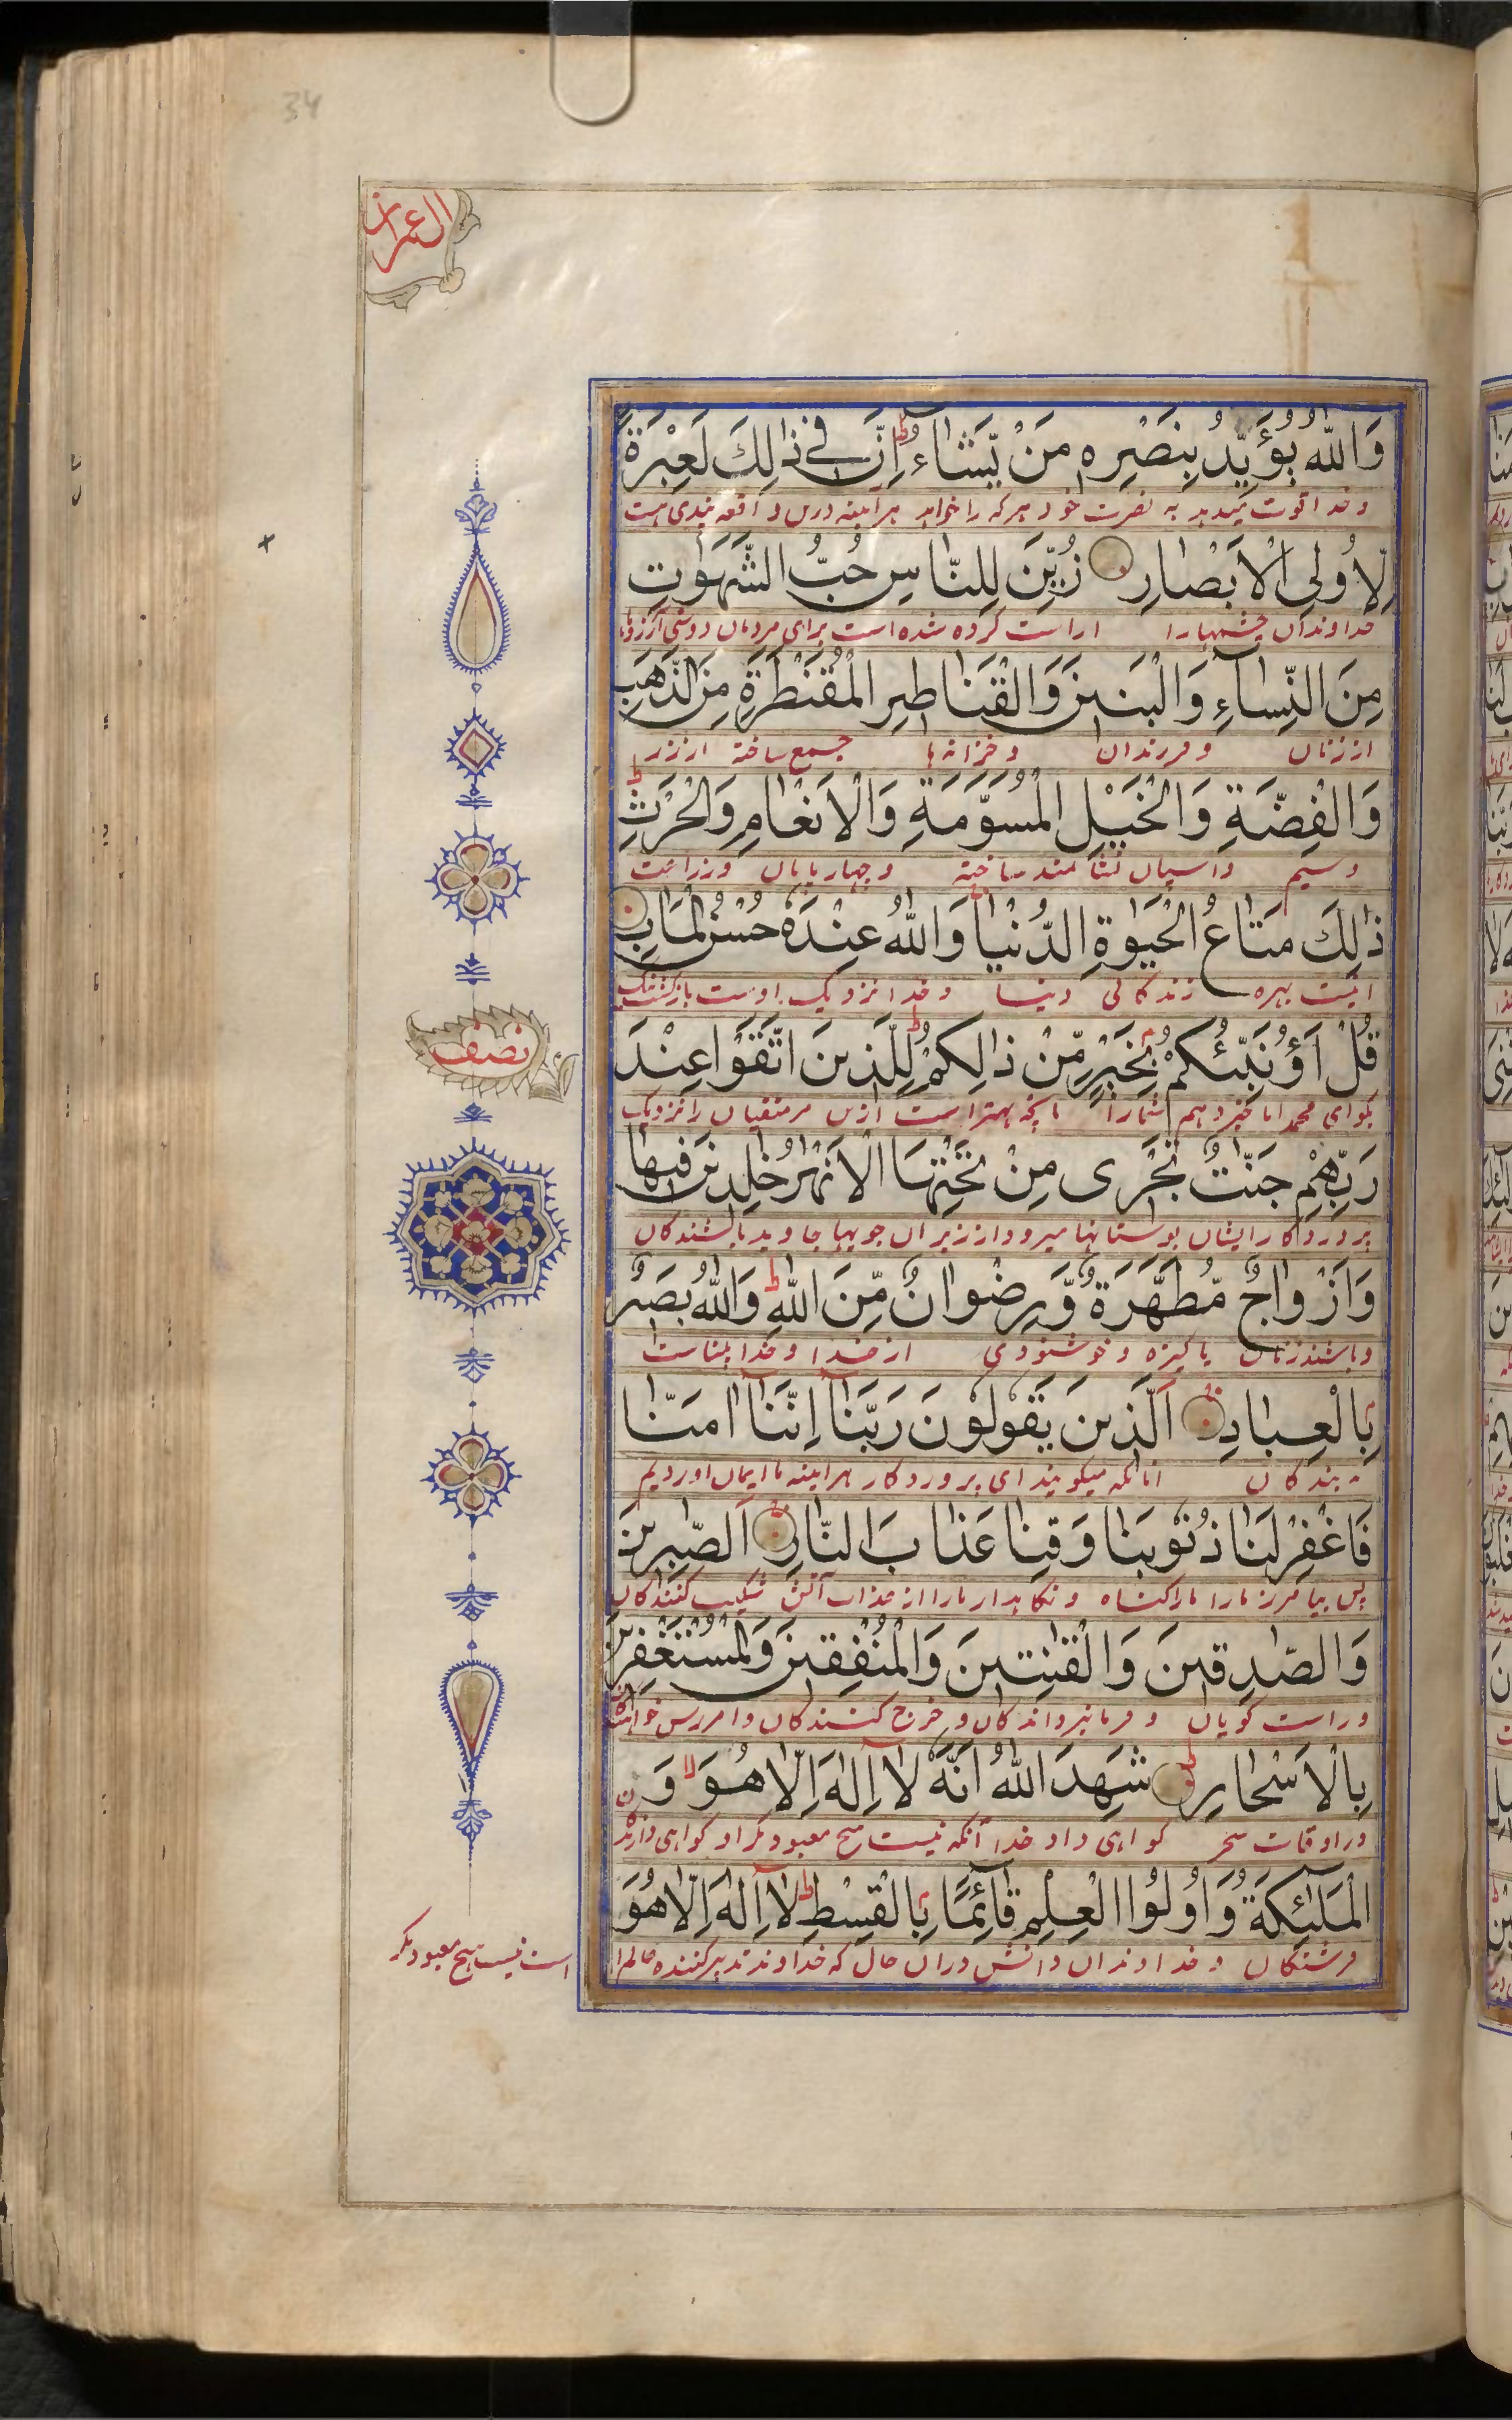 34
ال عمران
وَاللّٰهُ يُؤَيِّدُ بِنَصْرِهٖ مَنْ يَّشَآءُ ط اِنَّ فِيْ ذٰلِكَ لَعِبْرَةً
و خدا قوت میدهد به نصرت خود هر که را خواهد هر آینه درین واقعه پندی هست
لِّاُولِي الْاَبْصَارِ زُيِّنَ لِلنَّاسِ حُبُّ الشَّهَوٰتِ
خداوندان چشمها را اراست کرده شده است برای مردمان دوستی آرزوها
مِنَ النِّسَآءِ وَالْبَنِيْنَ وَالْقَنَاطِيْرِ الْمُقَنْطَرَةِ مِنَ الذَّهَبِ
از زنان و فرزندان و خزانه ها جمع ساخته از زر
وَالْفِضَّةِ وَالْخَيْلِ الْمُسَوَّمَةِ وَالْاَنْعَامِ وَالْحَرْثِ ط
و سیم و اسپان نشانمند ساخته و چهارپایان و زراعت
ذٰلِكَ مَتَاعُ الْحَيٰوةِ الدُّنْيَا وَاللّٰهُ عِنْدَهٗ حُسْنُ الْمَاٰبِ
اینست بهره زندگانی دنیا و خدا نزدیک اوست بازگشت نیک
نصف
قُلْ اَؤُنَبِّئُكُمْ بِخَيْرٍ مِّنْ ذٰلِكُمْ ط لِلَّذِيْنَ اتَّقَوْا عِنْدَ
بگو ای محمد ایا خبر دهم شما را بانچه بهتر است ازین مر متقیان را نزدیک
رَبِّهِمْ جَنّٰتٌ تَجْرِيْ مِنْ تَحْتِهَا الْاَنْهٰرُ خٰلِدِيْنَ فِيْهَا
پروردگار ایشان بوستانها میرود از زیر ان جویها جاوید باشندگان
وَاَزْوَاجٌ مُّطَهَّرَةٌ وَّرِضْوَانٌ مِّنَ اللّٰهِ ط وَاللّٰهُ بَصِيْرٌ
و باشند زنان پاکیزه و خوشنودی از خدا و خدا بیناست
بِالْعِبَادِ اَلَّذِيْنَ يَقُوْلُوْنَ رَبَّنَآ اِنَّنَآ اٰمَنَّا
به بندگان انانکه میگویند ای پروردگار هر اینه ما ایمان اوردیم
فَاغْفِرْ لَنَا ذُنُوْبَنَا وَقِنَا عَذَابَ النَّارِ اَلصّٰبِرِيْنَ
پس بیامرز ما را گناه و نگاهدار ما را از عذاب آتش شکیب کنندگان
وَالصّٰدِقِيْنَ وَالْقٰنِتِيْنَ وَالْمُنْفِقِيْنَ وَالْمُسْتَغْفِرِيْنَ
و راست گویان و فرمانبرداندگان و خرج کنندگان و امرزس خواهندگان
بِالْاَسْحَارِ شَهِدَ اللّٰهُ اَنَّهٗ لَآ اِلٰهَ اِلَّا هُوَ لا وَ
در اوقات سحر گواهی داد خدا آنکه نیست هیچ معبود مگر او گواهی دادند
الْمَلٰٓئِكَةُ وَاُولُوا الْعِلْمِ قَآئِمًا بِالْقِسْطِ ط لَآ اِلٰهَ اِلَّا هُوَ
فرشتگان و خداوندان دانش دران حال که خداوند تدبیر کننده عالم
است نیست هیچ معبود مگر